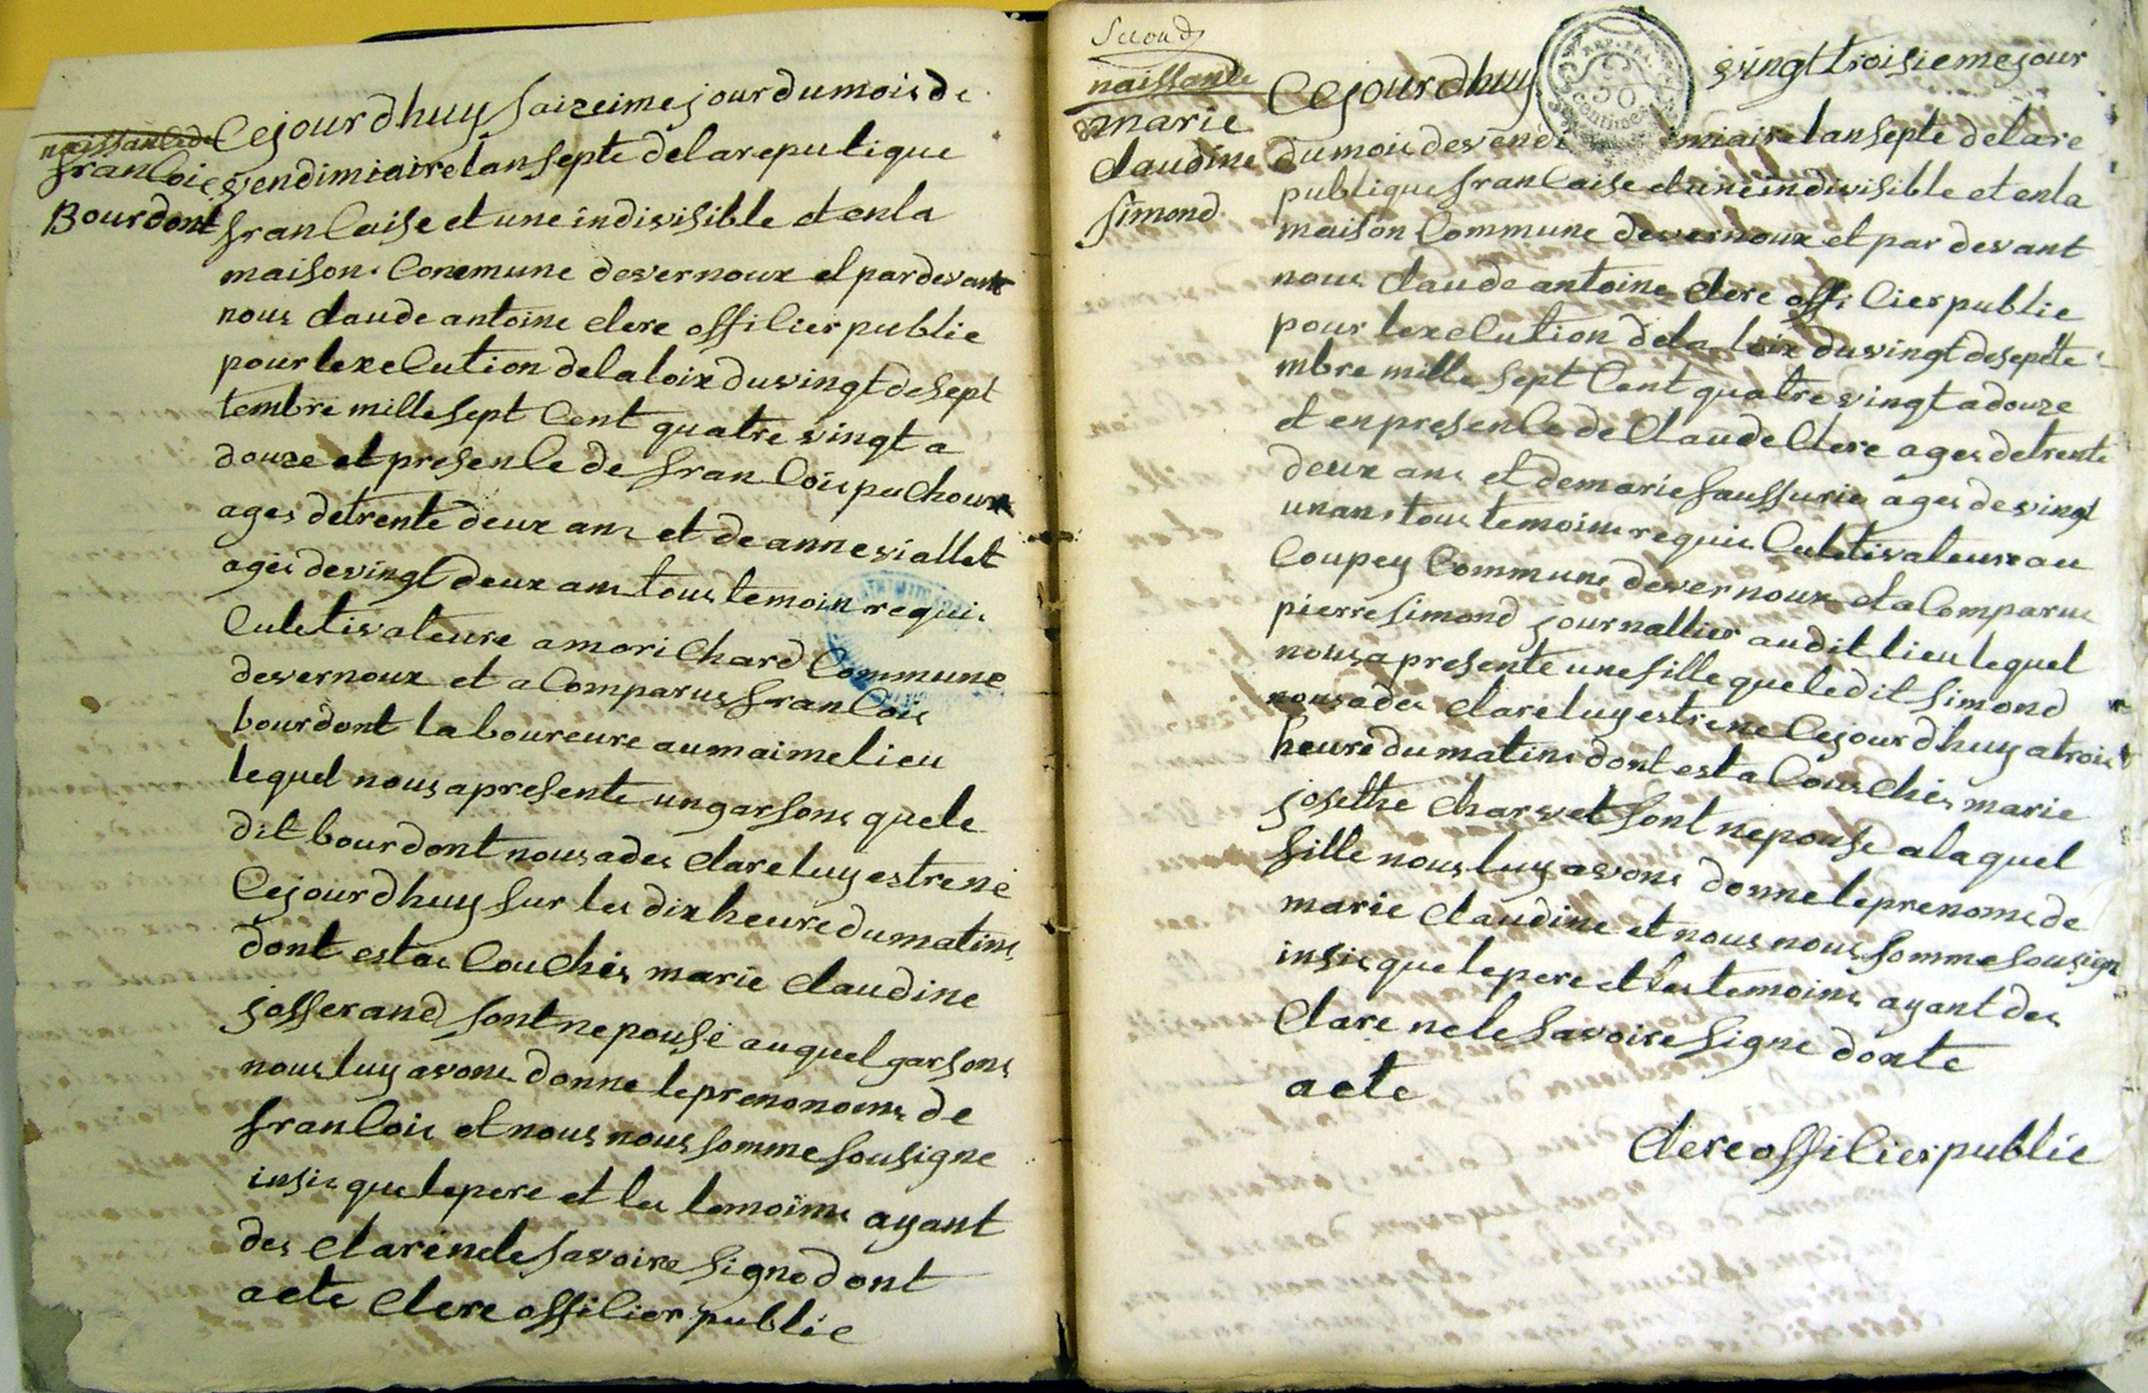 naissance de
francois
Bourdont
Cejourdhuy saizeime jour du mois de
vendimiaire lan septe de la reputique
francaise et une indivisible et en la
maison Conemune de vernoux et par devant
nous Claude antoine clere officier public
pour lexecution de la loix du vingt de sept
tembre mille sept Cent quatre vingt a
douze et presence de francois puChoux
ages de trente deux ans et de anne viallet
ages de vingt deux ans tous temoin requis
Culetivateure a moriChard Commune
de vernoux et a Comparus francois
bourdont laboureure au maime lieu
lequel nous a presente un garsons que le
dit bourdont nous a des clare luy estre né
Cejourdhuy sur les dix heure du matins
dont estac Couchés marie Claudine
josserand sont nepousé auquel garsons
nous luy avons donne le prenonoms de
francois et nous nous somme sousigne
insis que le pere et les temoins ayant
des clare ne le savoire signe dont
acte Clere officier public
Second
naissance
marie
Claudine
simond
Cejourdhuy vingt troisieme jour
REP. FRA.
50
Centimes
du mois de vendimiaire lan septe de la re
publique francaise et une indivisible et en la
maison Commune de vernoux et par devant
nous Claude antoine Clere officier public
pour lexecution de la loix du vingt de septte
mbre mille sept Cent quatre vingt a douze
et en presence de Claude Clere ages de trente
deux ans et de marie saussurie ages de vingt
un ans tous temoins requis Culetivateure au
Coupey Commune de vernoux et a Comparus
pierre simond journallier au dit lieu lequel
nous a presente une fille que le dit simond
nous a des clare luy estre ne Cejourdhuy a trois
heure du matins dont est a Couschés marie
josethe Charvet sont nepouse a laquel
fille nous luy avons donne le prenoms de
marie Claudine et nous nous somme sousign
insis que le pere et les temoins ayant des
Clare ne le savoire signe donte
acte
Clere officier public